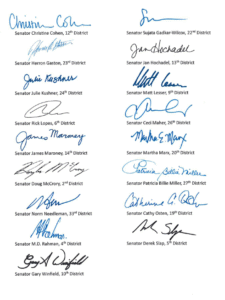 Christine Cohen
Senator Christine Cohen, 12th District
Senator Sujata Gadkar-Wilcox, 22nd District
Senator Herron Gaston, 23rd District
Jan Hochadel
Senator Jan Hochadel, 13th District
Julie Kushner
Senator Julie Kushner, 24th District
Matt Lesser
Senator Matt Lesser, 9th District
Senator Rick Lopes, 6th District
Senator Ceci Maher, 26th District
James Maroney
Senator James Maroney, 14th District
Martha E. Marx
Senator Martha Marx, 20th District
Senator Doug McCrory, 2nd District
Patricia Billie Miller
Senator Patricia Billie Miller, 27th District
Senator Norm Needleman, 33rd District
Catherine A. Osten
Senator Cathy Osten, 19th District
Senator M.D. Rahman, 4th District
Senator Derek Slap, 5th District
Gary A Winfield
Senator Gary Winfield, 10th District